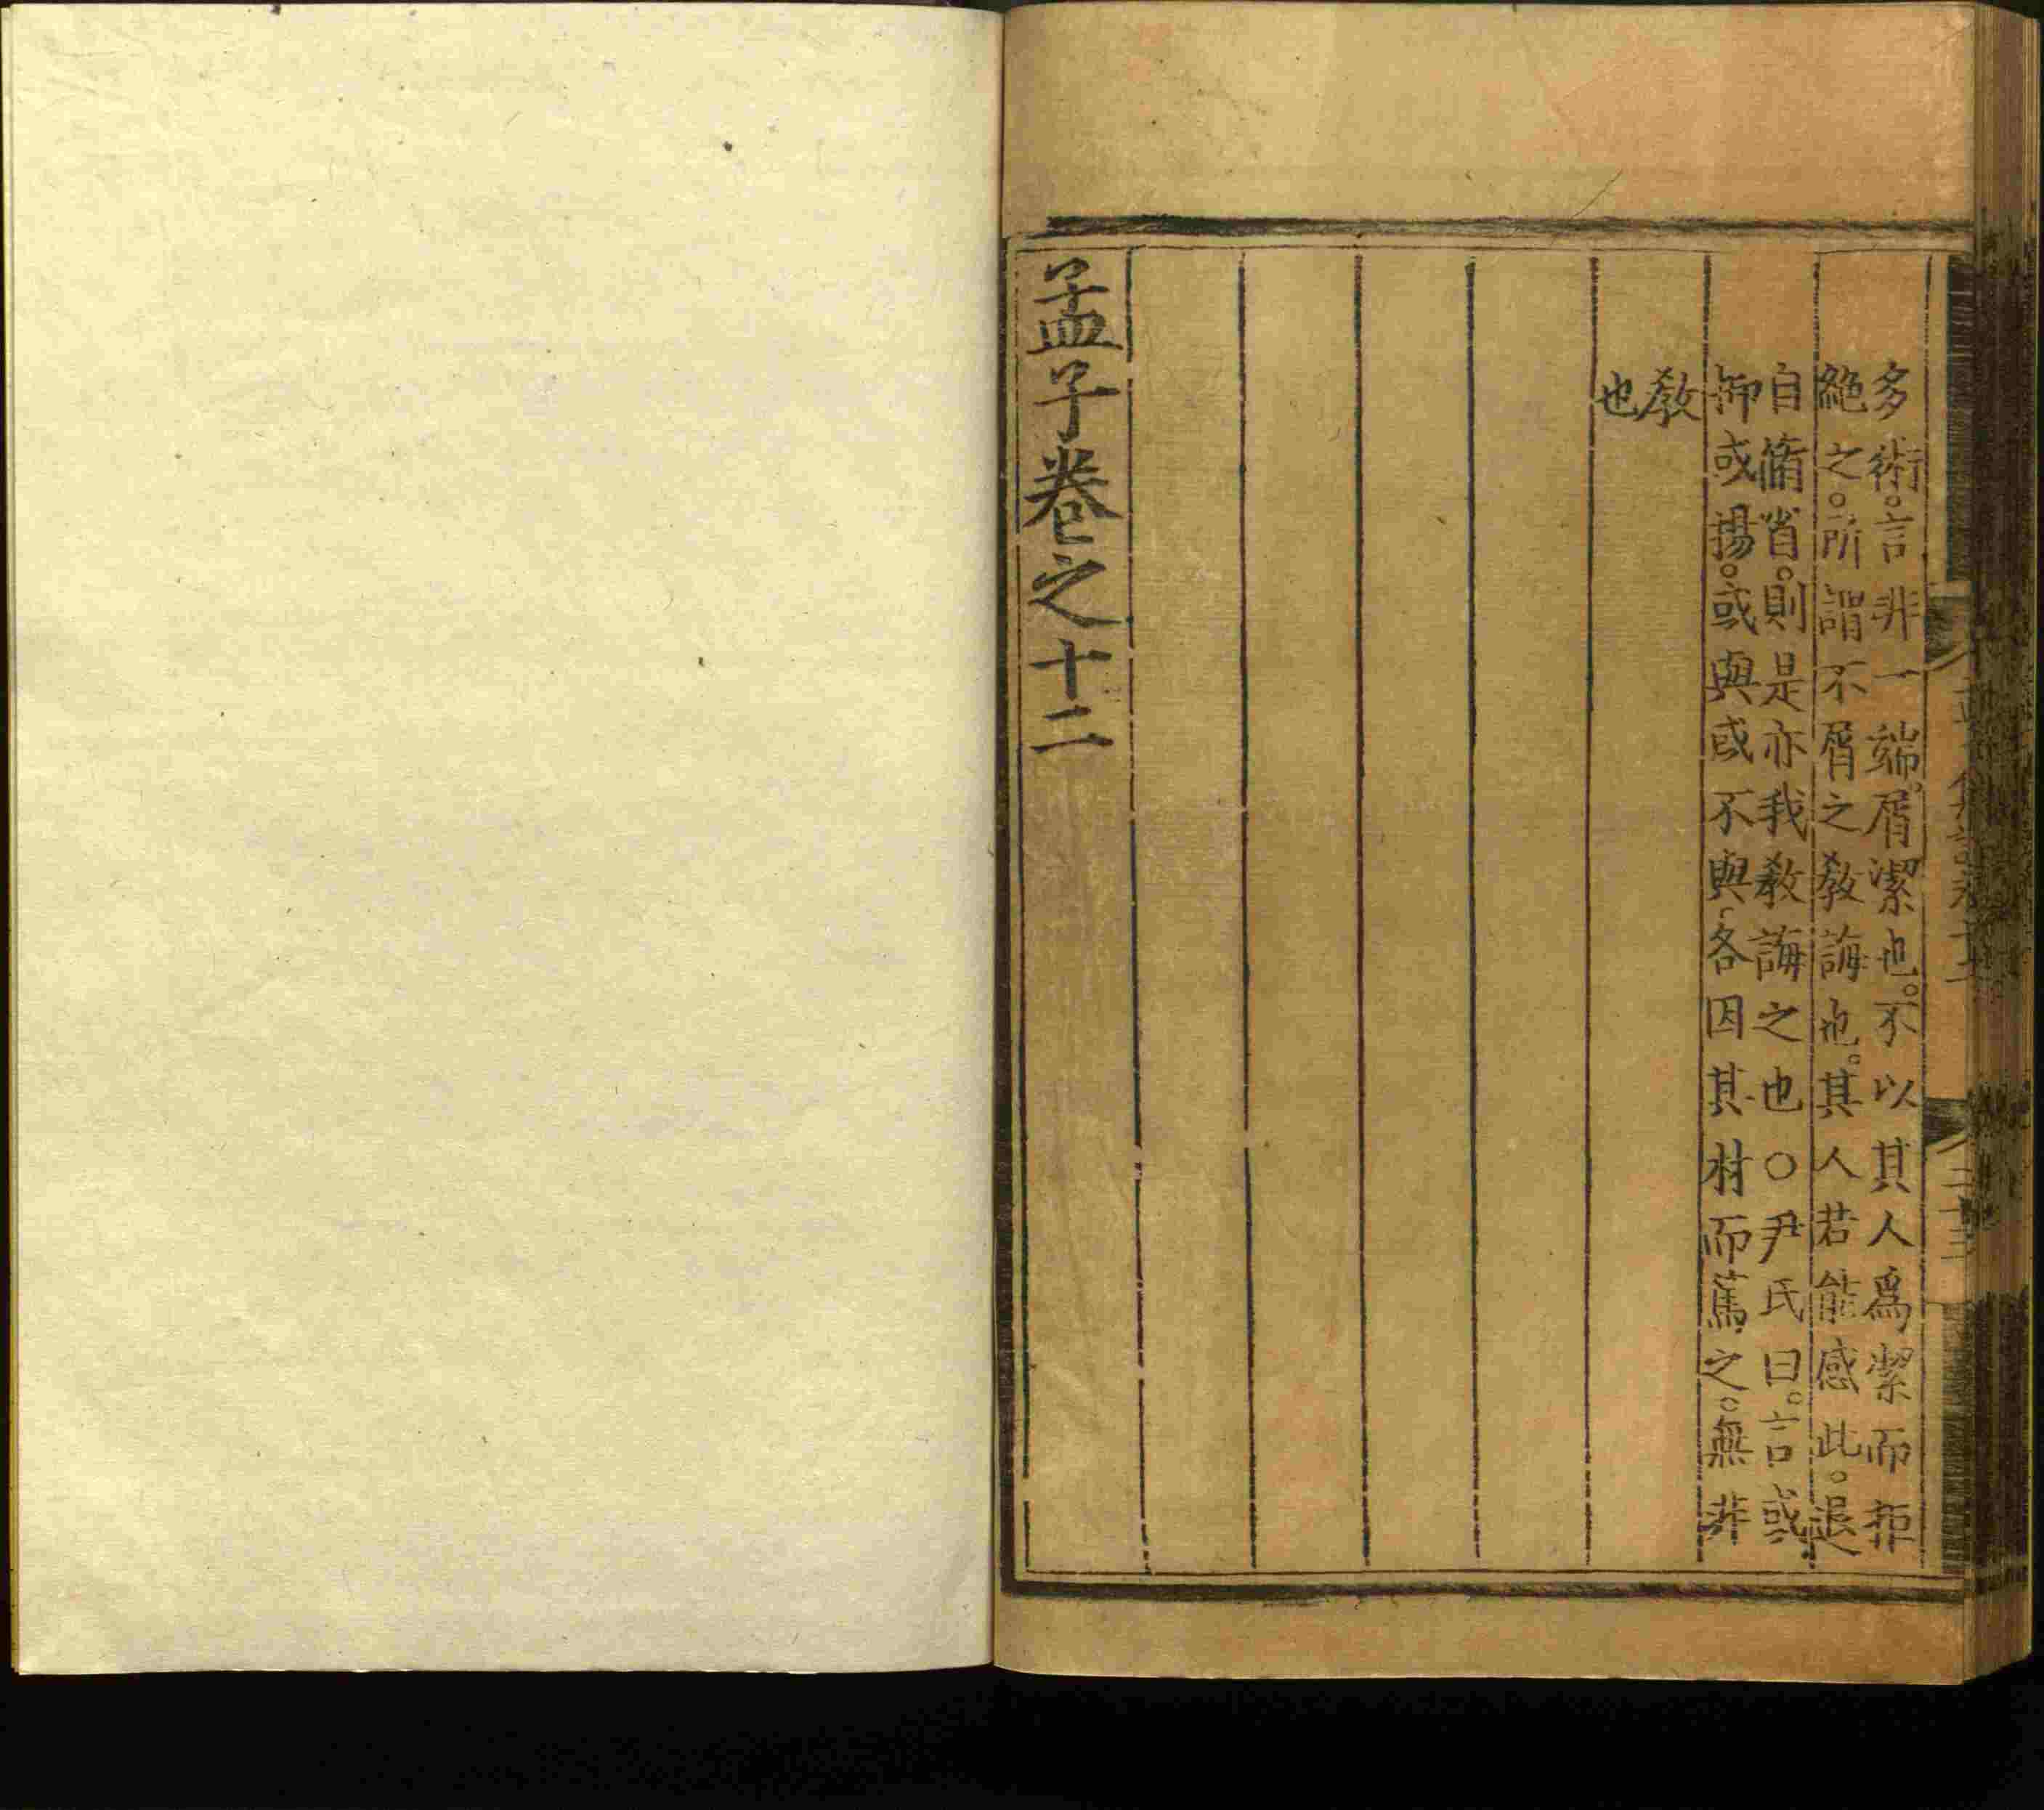 多術。言非一端。屑潔也。不以其人爲潔而拒
絶之。所謂不屑之敎誨也。其人若能感此。退
自脩省。則是亦我敎誨之也○尹氏曰。言或
抑或揚。或與或不與。各因其材而篤之。無非
敎
也
孟子卷之十二